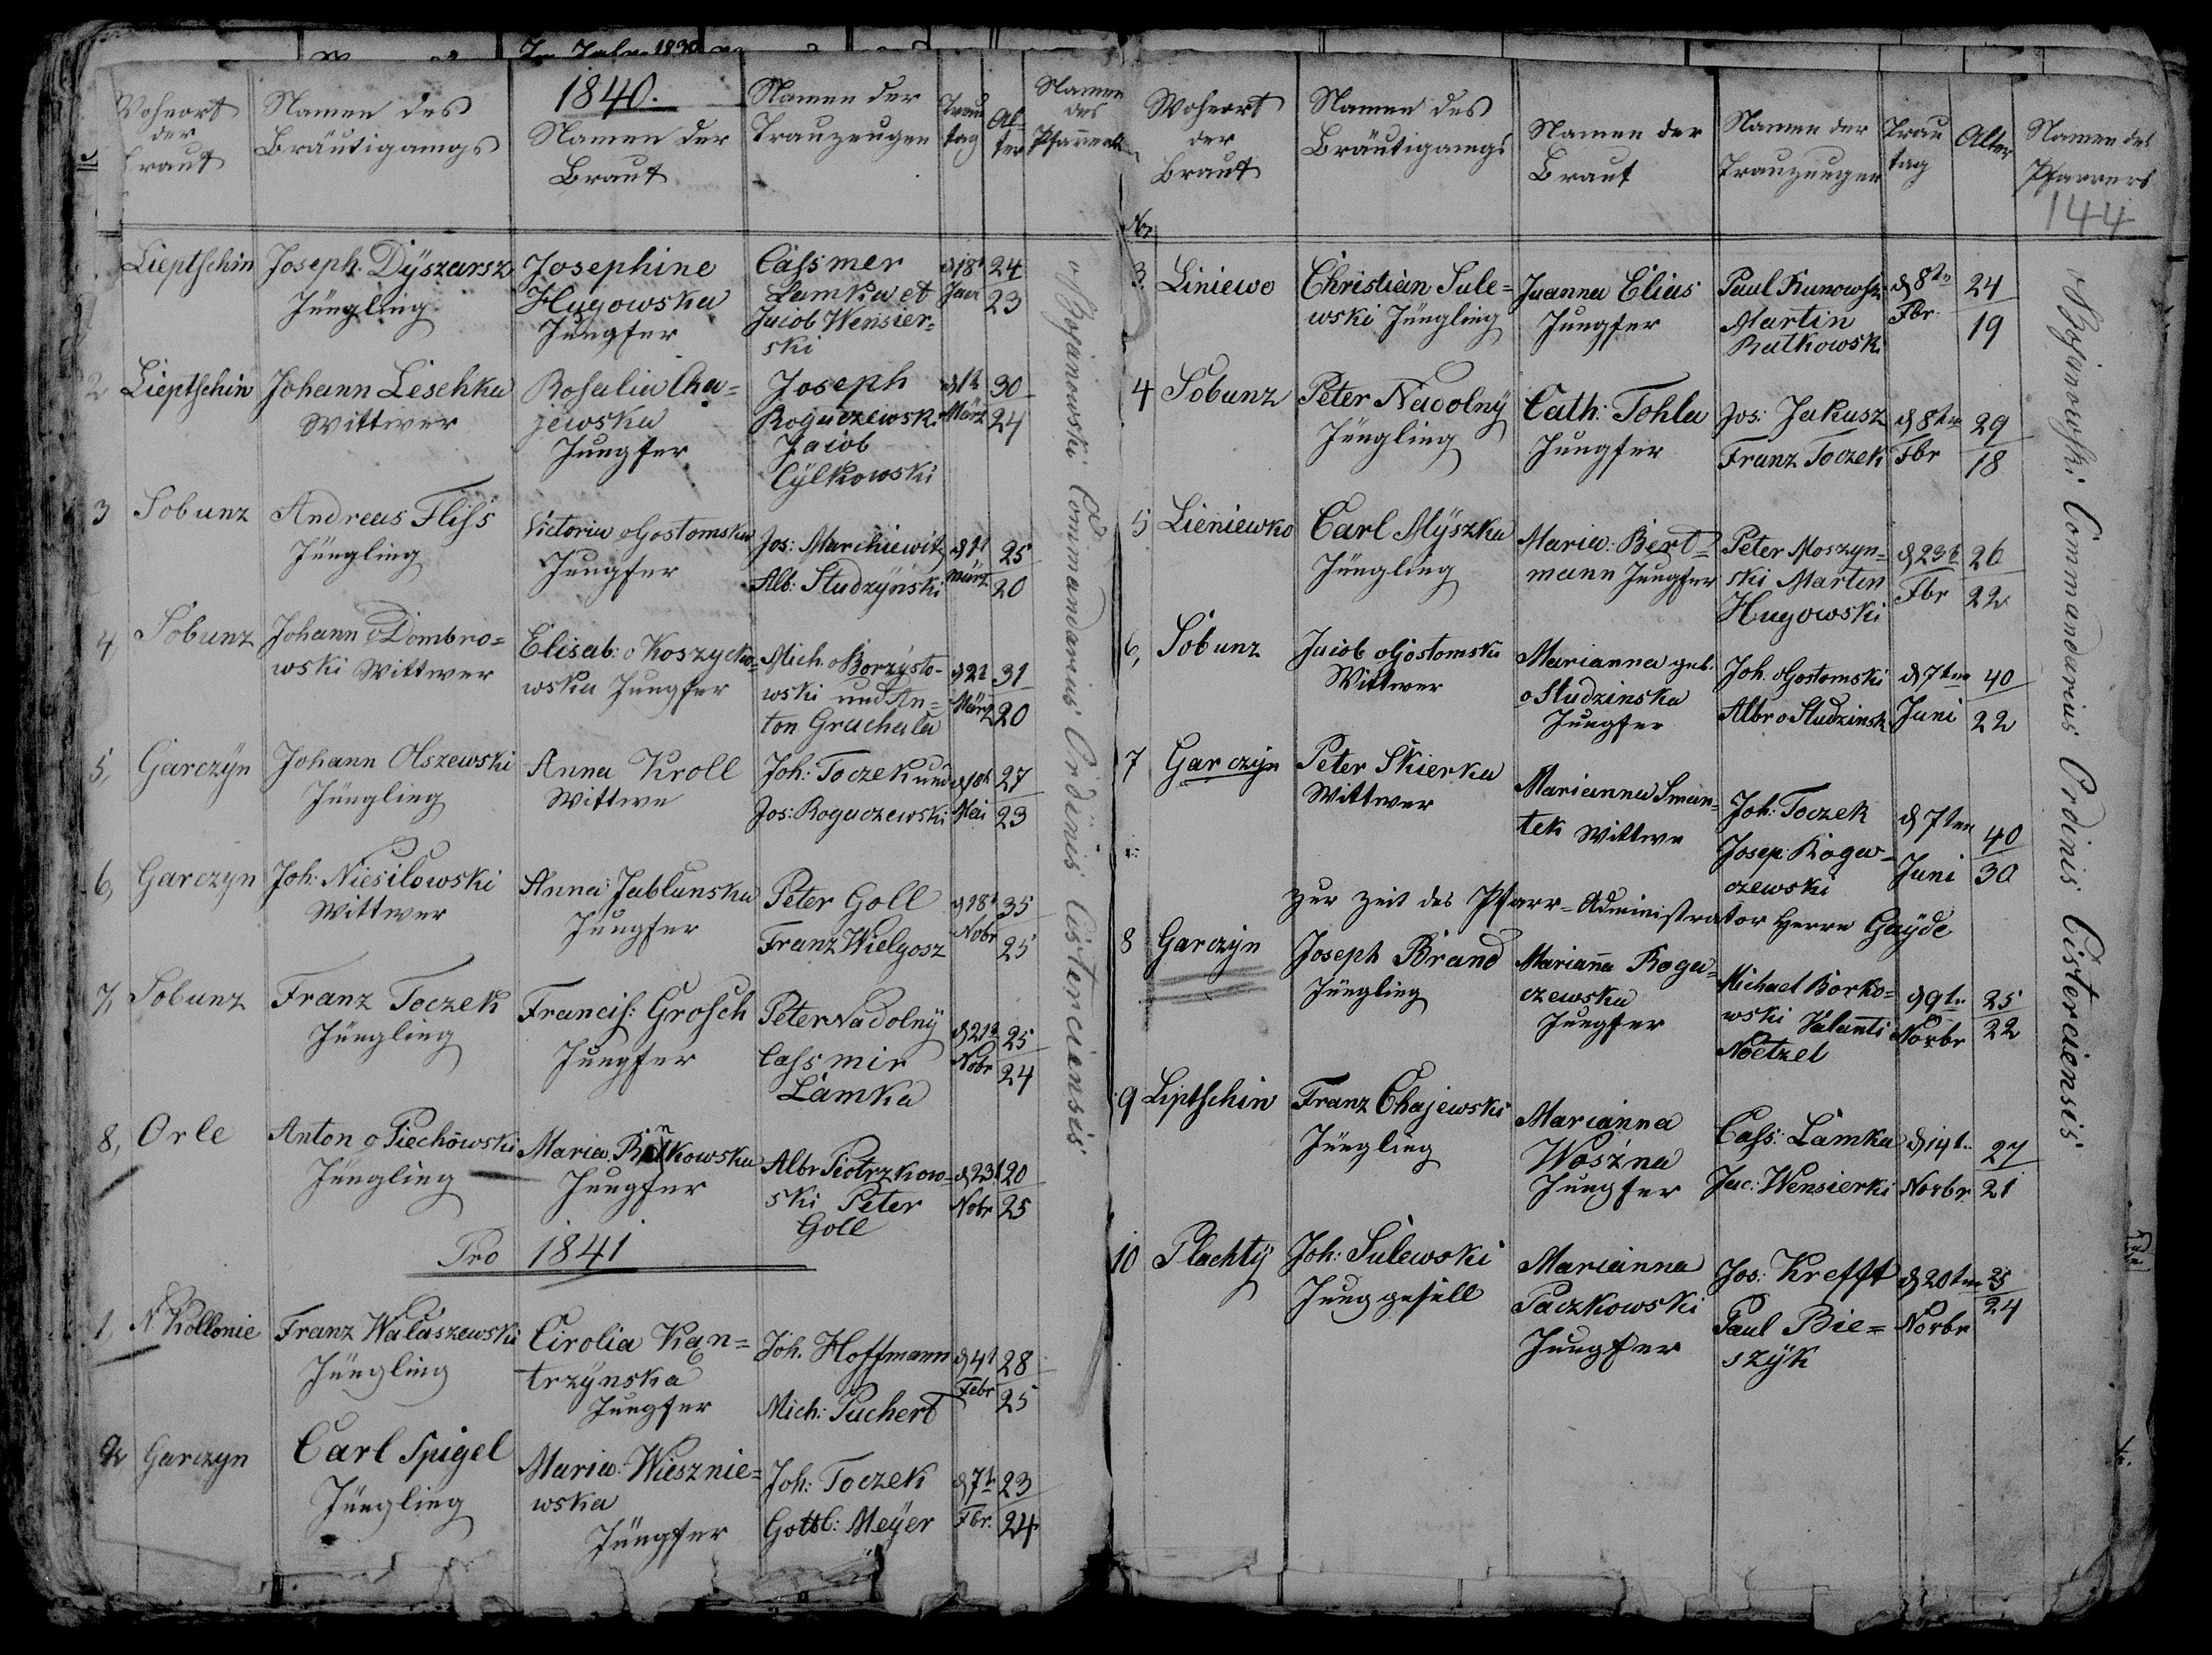 Im Jahre 1839
1840.
Wohnort der Braut
Namen des Bräutigamgs
Namen der Braut
Namen der Trauzeugen
Trau tag
Alter
Namen des Pfarrers
Lieptschin Joseph Dÿszarsz Jüngling
Josephine Hugowska Jungfer
Cassmer Lamka et Jacob Wensier=ski
d 18t Jan
24
23
2 Lieptschin Johann Leschka Wittwer
Rosalia Cha=jewska Jungfer
Joseph Rogaczewski Jacob Cÿlkowski
d 1t März
30
24
3 Sobunz Andreas Fliss Jüngling
Victoria v Gostomska Jungfer
Jos: Marchiewitz Alb: Studzÿnski
d 1t März
25
20
4, Sobunz Johann v Dombro=wski Wittwer
Elisab: v Koszycko=wska Jungfer
Mich. v Borzÿsto-wski und An=ton Grachala
d 2t März
31
20
5, Garczÿn Johann Olszewski Jüngling
Anna Kroll Wittwe
Joh: Toczek und Jos: Rogaczewski
d 10t Mai
27
23
6, Garczyn Joh: Niesilowski Wittwer
Anna Jablunska Jungfer
Peter Goll Franz Wielgosz
d 18t Nobr
35
25
7, Sobunz Franz Toczek Jüngling
Francis: Grosch Jungfer
Peter Nadolnÿ Cassmir Lamka
d 21t Nobr
25
24
8, Orle Anton v Piechowski Jüngling
Maria Rinkowska Jungfer
Albr Piotrzkow=ski Peter Goll
d 23t Nobr
20
25
Pro 1841
1, N Kollonie Franz Walaszewski Jüngling
Cirolia Kan=trzÿnska Jungfer
Joh. Hoffmann Mich: Puchert
d 4t Febr
28
25
2 Garczyn Carl Spigel Jüngling
Maria: Wiesznie=wska Jüngfer
Joh: Toczek Gottl: Meÿer
d 7t Fbr.
23
24
v Bojanowski Commandarius Ordinis Cisterciensis
Wohnort der Braut
Namen des Bräutigamgs
Namen der Braut
Namen der Trauzeugen
Trau tag
Alter
Namen des Pfarrers
144
No
3. Liniewo Christian Sule=wski Jüngling
Juanna Elias Jungfer
Paul Kunowski Martin Rutkowski
d 8tn Fbr.
24
19
4 Sobunz Peter Nadolnÿ Jüngling
Cath: Tohla Jungfer
Jos: Jakusz Franz Toczek
d 8tn Fbr
29
18
5 Lieniewko Carl Mÿszka Jüngling
Maria: Bert=mann Jungfer
Peter Moszyn=ski Marten Hugowski
d 23t Fbr
26
22
6, Sobunz Jacob v Gostomski Wittwer
Marianna geb. v Studzinska Jungfer
Joh. v Gostomski Albr v Studzinsk
d 7ten Juni
40
22
7 Garczÿn Peter Skierka Wittwer
Marianna Sman=tek Wittwe
Joh: Toczek Josep: Roga=czewski
d 7ten Juni
40
30
zur Zeit des Pfarr-Administrator Herrn Gaÿde
8 Garczÿn Joseph Brand Jüngling
Marianna Roga=czewska Jungfer
Michael Borko=wski Valanti Noetzel
d 9tn Novbr
25
22
9 Liptschin Franz Chajewski Jüngling
Marianna Woźna Jungfer
Cass: Lamka Jac: Wensierki
d 14tn Novbr.
27
21
10 Plachtÿ Joh: Sulewski Junggesell
Marianna Paczkowski Jungfer
Jos: Krefft Paul Bie=szÿk
d 20ten Novbr
25
24
v Bojanowski Commandarius Ordinis Cisterciensis